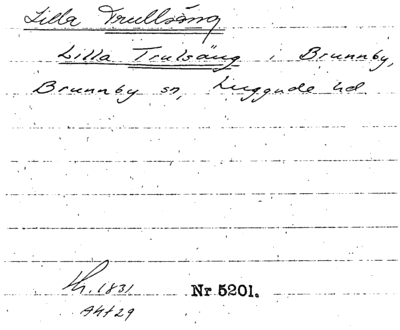 Lilla Trullsäng
Lilla Trulsäng i Brunnby,
Brunnby sn, Luggude hd.
Nr 5201.
1831